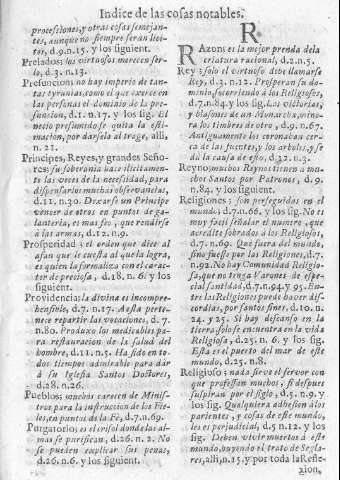 Indice de las cosas notables.
processiones, y otras cosas semejan-
tes, aunque no siempre serán lici-
tos, d.9.n.15. y los siguient.
Prelados: los virtuosos merecen ser-
lo, d.3. n.13.
Presuncion: no hay imperio de tan-
tas tyrunias, como el que exerce en
las personas el dominio de la pre-
suncion, d.1. n.17. y los sig. El
necio presumido se quita la esti-
macion, por darsela al trage, alli,
n. 21.
Principes, Reyes, y grandes Seño-
res: su soberania haze licitamen-
te las veces de la necessidad, para
dispensarlos muchas observancias,
d.11. n.30. Dexarse un Principe
vencer de otros en puntos de ga-
lanteria, es mas feo, que rendirse
à las armas, d.12. n.9.
Prosperidad: el orden que dice al
afan que le cuesta al que la logra,
es quien la formaliza con el carac-
ter de preciosa, d.18. n. 6. y los
siguient.
Providencia: la divina es incompre-
hensible, d.7. n.17. à esta perte-
nece repartir las vocaciones, d.7.
n.80. Produxo los medicables pa-
ra restauracion de la salud del
hombre, d.11. n.5. Ha sido en to-
dos tiempos admirable para dár
à su Iglesia Santos Doctores,
d.28. n.26.
Pueblos: muchos carecen de Minis-
tros para la instruccion de los Fie-
les, en puntos de la Fè, d.7. n.69.
Purgatorio: es el crisol donde las al-
mas se purifican, d.26. n. 2. No
se pueden explicar sus penas,
d.26. n.6. y los siguient.
R
RAzon: es la mejor prenda de la
criatura racional, d.2. n.5.
Rey: solo el virtuoso debe llamarse
Rey, d.3. n.12. Prosperan su do-
minio socorriendo à los Religiosos,
d.7. n.84. y los sig. Las victorias,
y blasones de un Monarcha, mino-
ra los timbres de otro, d.9. n.67.
Antiguamente los coronaban cer-
ca de las fuentes, y los arboles, y se
dà la causa de esto, d.32. n.3.
Reyno: muchos Reynos tienen a mu-
chos Santos por Patronos, d. 9.
n.84. y los siguient.
Religiones: son perseguidas en el
mundo, d.7. n.66. y los sig. No es
muy facil señalar el numero, que
acredite sobrados à los Religiosos,
d.7. n.69. Que fuera del mundo,
si no fuesse por las Religiones, d.7.
n.92. No hay Comunidad Religio-
sa, que no tenga Varones de espe-
cial santidad, d.7. n.94. y 95. En-
tre las Religiones puede haver dis-
cordias, por santos fines, d.10. n.
24. y 25. Si hay descanso en la
tierra, solo se encuentra en la vida
Religiosa, d.25. n. 6. y los sig.
Esta es el puerto del mar de este
mundo, d.25. n.8.
Religioso: nada sirve el servor con
que professan muchos, si despues
suspiran por el siglo, d.5. n.9. y
los sig. Qualquiera adhesion à los
parientes, y cosas de este mundo,
les es perjudicial, d.5 n.12. y los
sig. Deben vivir muertos à este
mundo, huyendo el trato de Segla-
res, alli, n.15. y por toda la Refle-
xion.